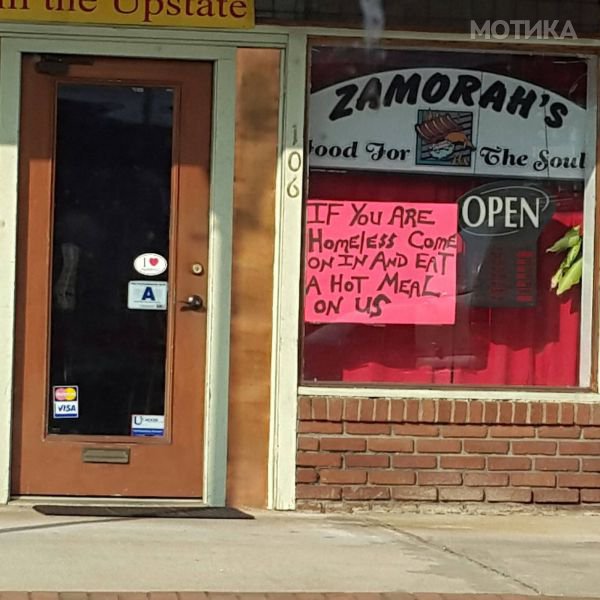 in the Upstate
МОТИКА
ZAMORAH'S
Food For The Soul
106
IF YOU ARE
HOMELESS COME
ON IN AND EAT
A HOT MEAL
ON US
OPEN
I
A
VISA